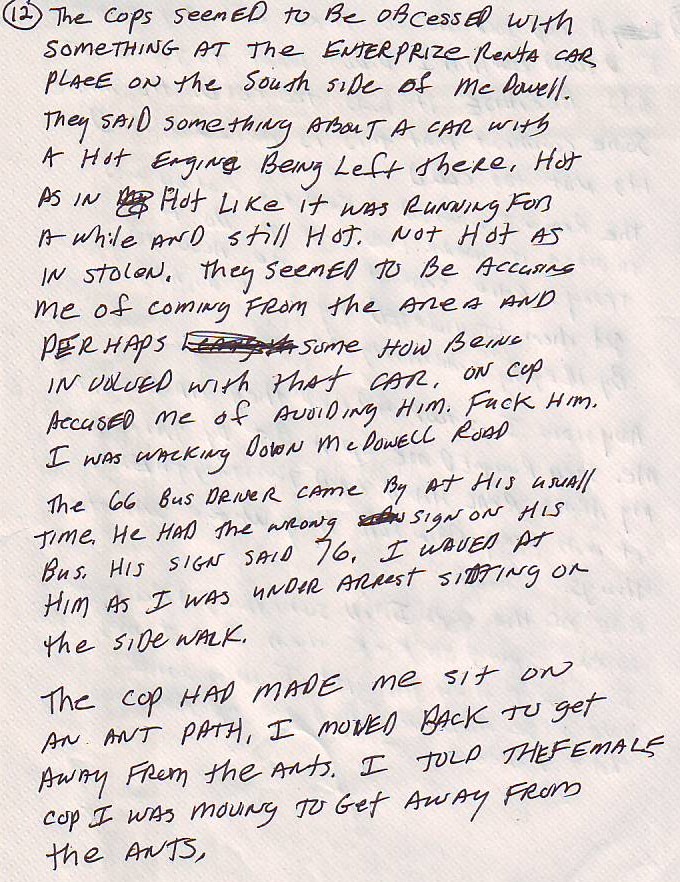 (12) The Cops seemed to be obcessed with
something at the Enterprize Renta car
place on the South side of McDowell.
They said something about a car with
a hot engine being left there. Hot
as in Hot like it was running for
a while and still hot. Not Hot as
in stolen. They seemed to be accusing
me of coming from the area and
perhaps some how being
involved with that car. on cop
accused me of avoiding him. Fuck him.
I was walking down McDowell Road
The 66 Bus Driver came by at his usuall
time. He had the wrong sign on his
Bus. His sign said 76. I waved at
Him as I was under arrest sitting on
the side walk.
The cop had made me sit on
an ant path, I moved back to get
away from the ants. I told the female
cop I was moving to get away from
the ants,